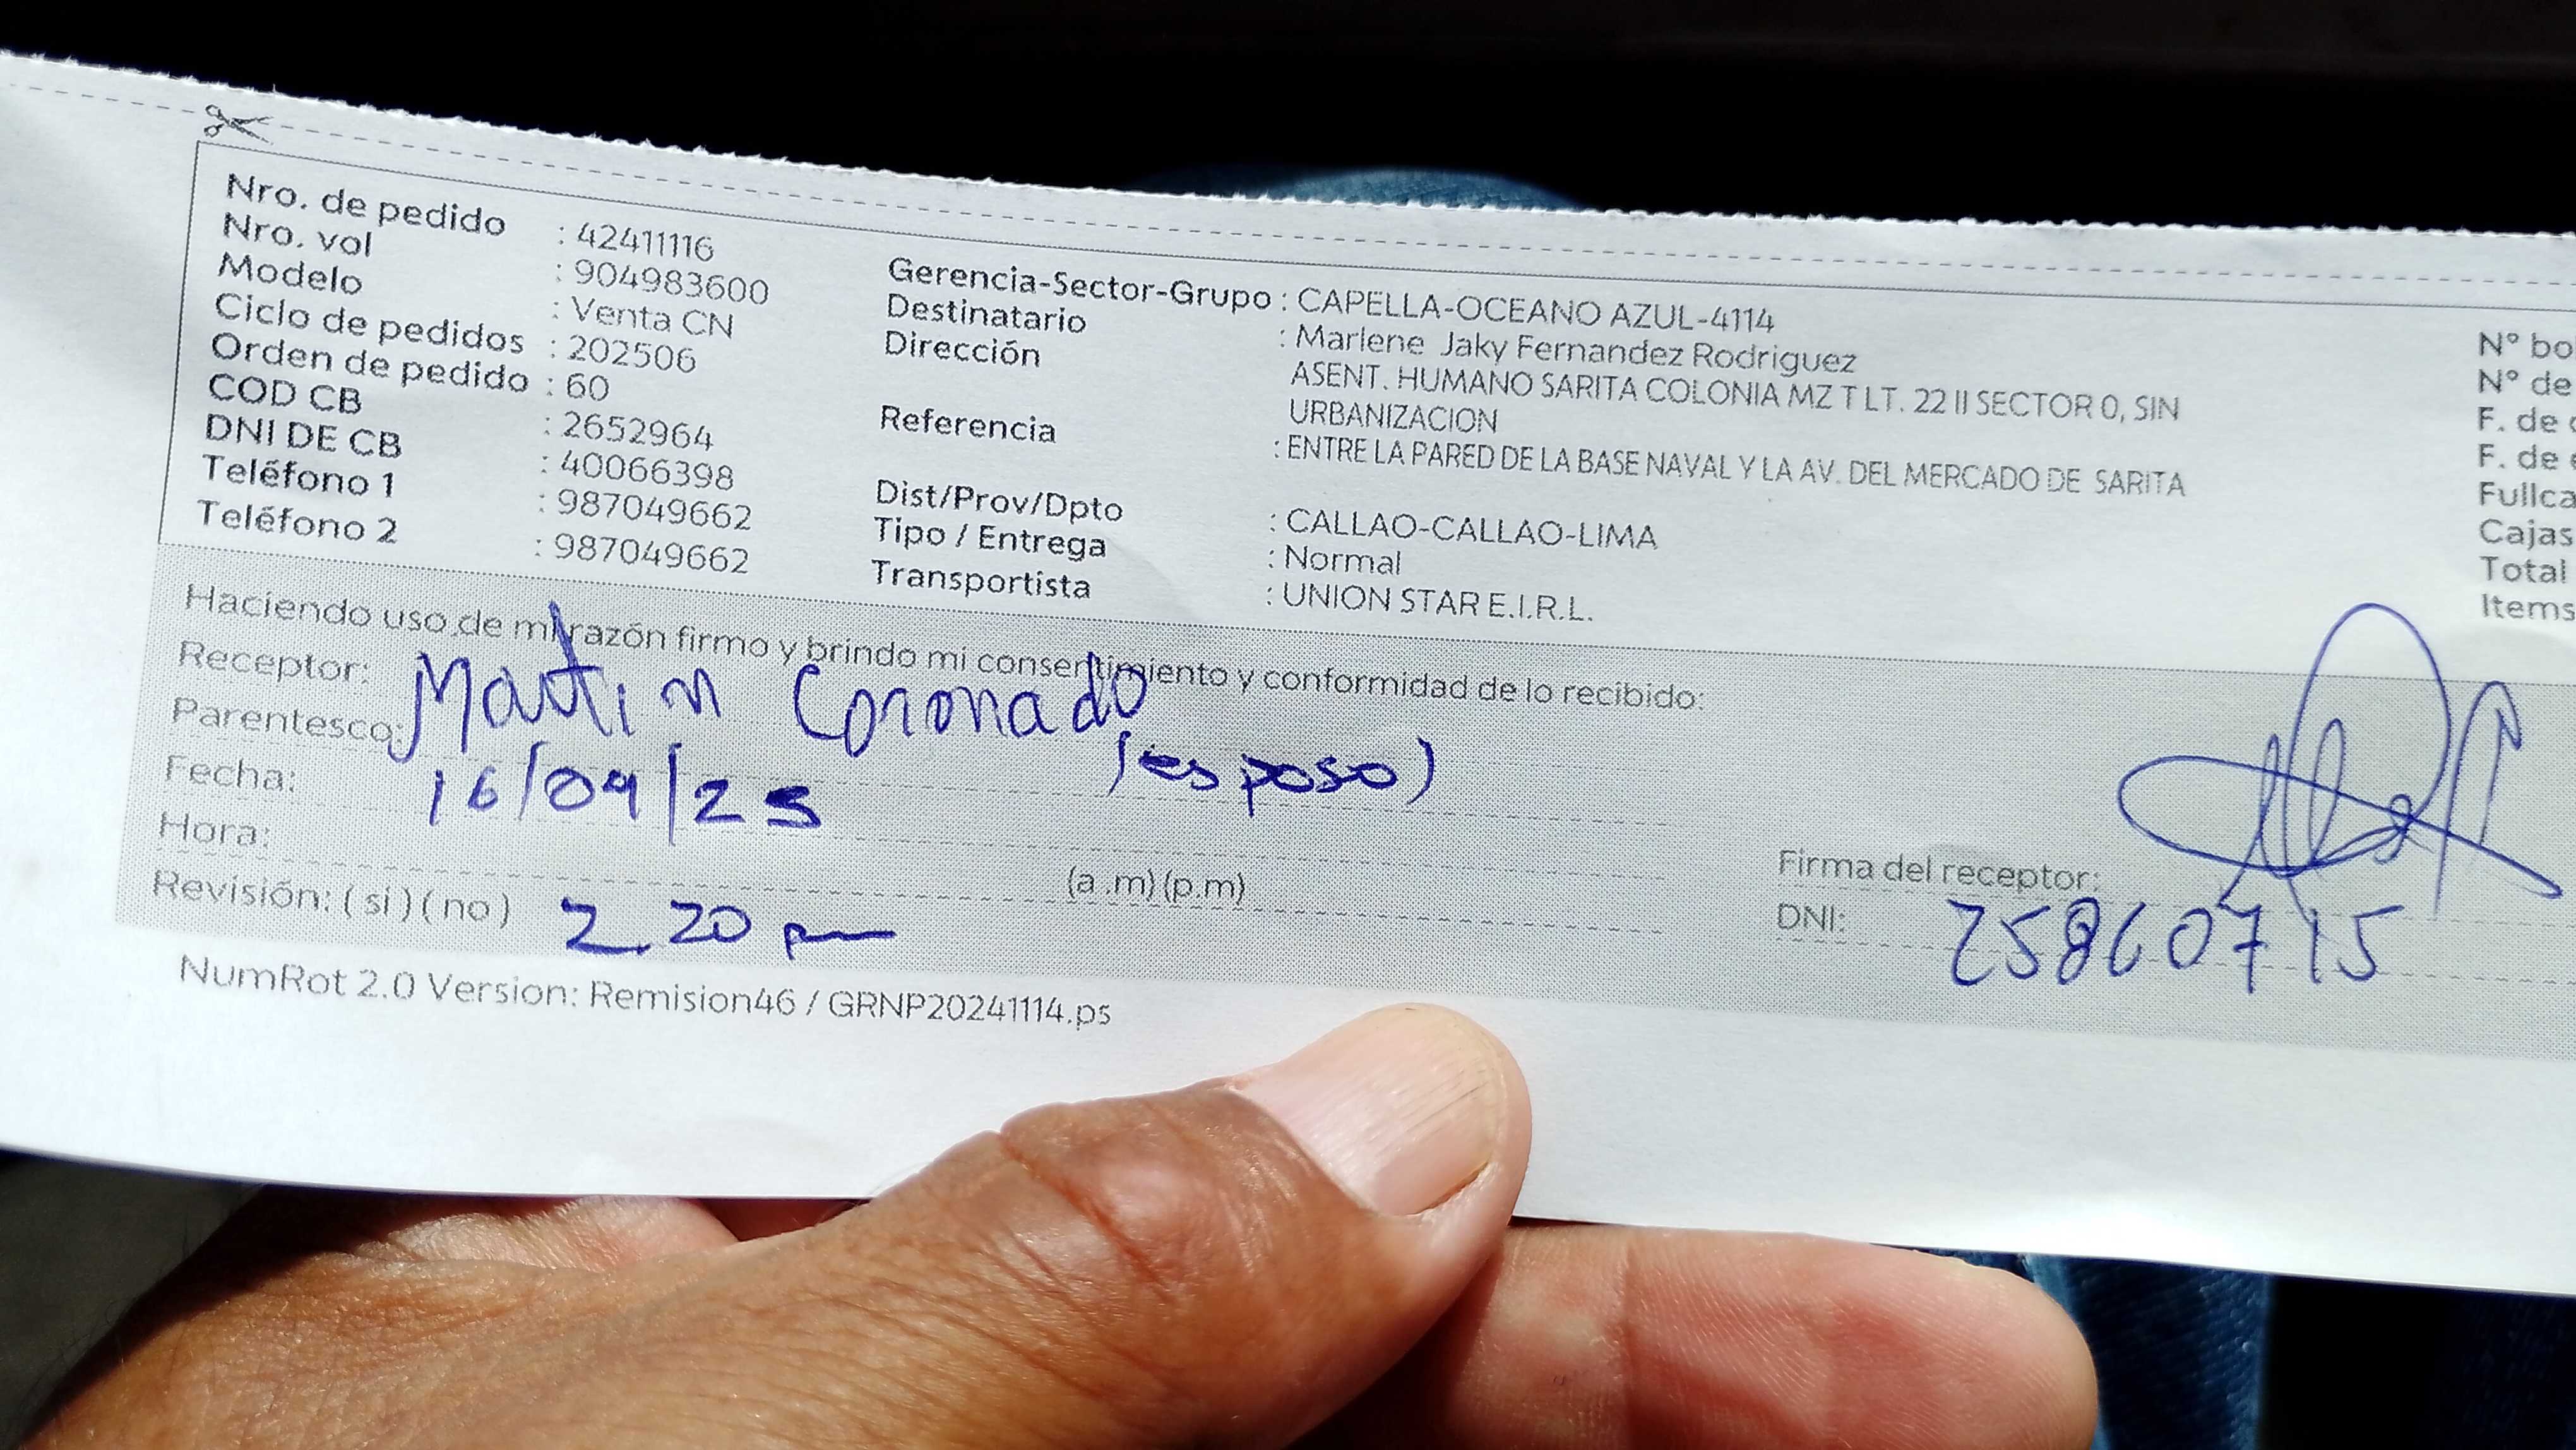 Nro. de pedido : 42411116
Nro. vol : 904983600
Modelo : Venta CN
Ciclo de pedidos : 202506
Orden de pedido : 60
COD CB : 2652964
DNI DE CB : 40066398
Teléfono 1 : 987049662
Teléfono 2 : 987049662
Gerencia-Sector-Grupo : CAPELLA-OCEANO AZUL-4114
Destinatario : Marlene Jaky Fernandez Rodriguez
Dirección ASENT. HUMANO SARITA COLONIA MZ T LT. 22 II SECTOR 0, SIN
URBANIZACION
Referencia : ENTRE LA PARED DE LA BASE NAVAL Y LA AV. DEL MERCADO DE SARITA
Dist/Prov/Dpto : CALLAO-CALLAO-LIMA
Tipo / Entrega : Normal
Transportista : UNION STAR E.I.R.L.
N° bo
N° de
F. de
F. de
Fullca
Cajas
Total
Items
Haciendo uso de mi razón firmo y brindo mi consentimiento y conformidad de lo recibido:
Receptor: Martin Coronado
Parentesco: (esposo)
Fecha: 16/04/25
Hora: (a .m) (p.m)
Revisión: ( si ) ( no ) 2 20 pm
Firma del receptor:
DNI: 25860715
NumRot 2.0 Version: Remision46 / GRNP20241114.ps